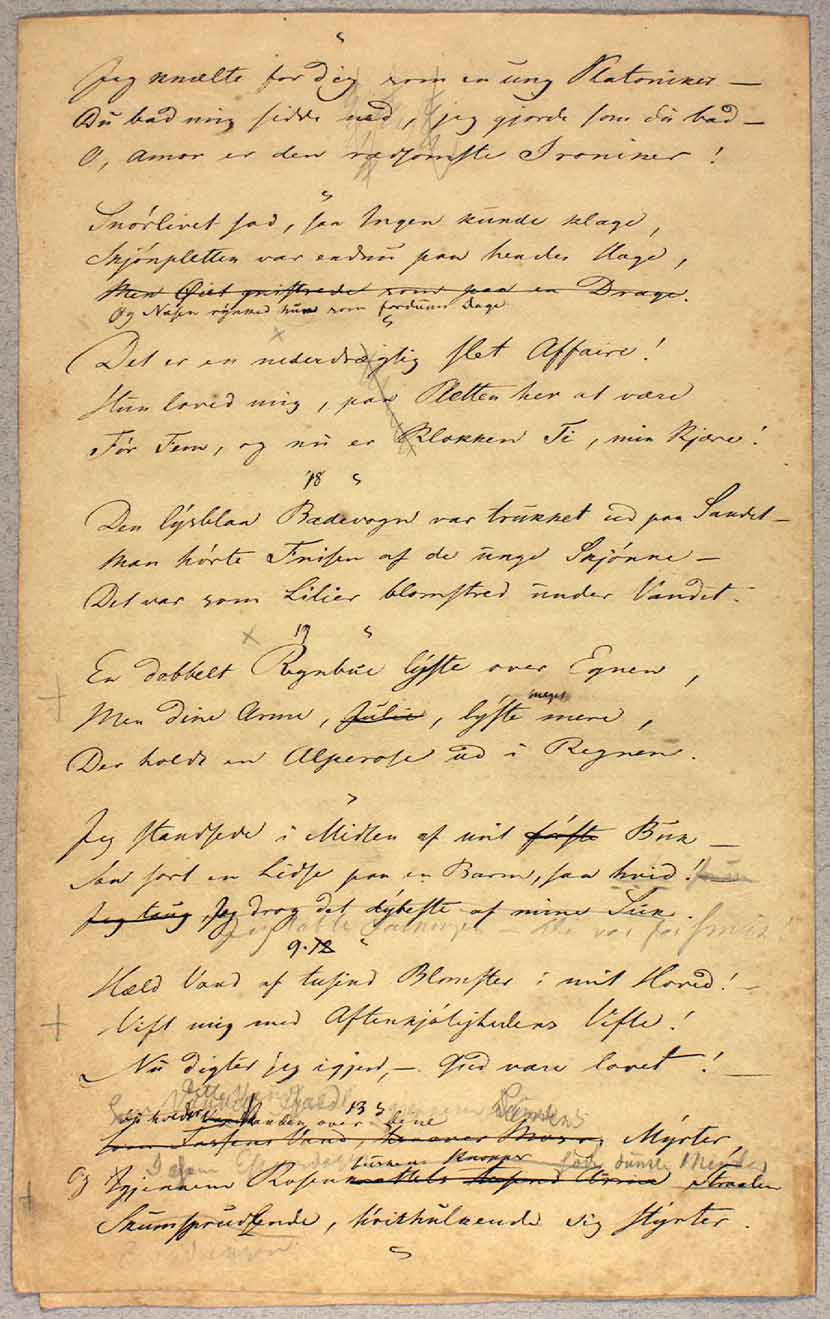 Jeg knælte for dig som en ung Platoniker —
Du bad mig sidde ned, jeg gjorde som du bad —
O, Amor er den rædsomste Ironiker!
Snörlivet sad, saa Ingen kunde klage,
Skjönpletten var endnu paa hendes Hage,
Men Öiet gnistrede som paa en Drage.
Og Næsen rynked hun som fordums Dage
Det er en nederdrægtig slet Affaire!
Hun loved mig, paa Pletten her at være
För Fem, og nu er Klokken Ti, min Kjære!
18
Den lýsblaa Badevogn var trukket ud paa Sandet —
Man hörte Fnisen af de unge Skjönne —
Det var som Lilier blomstred under Vandet.
19
En dobbelt Regnbue lýste over Egnen,
meget
Men dine Arme, Julie, lýste mere,
Der holdt en Alperose ud i Regnen.
Jeg standsede i Midten af mit förste Buk —
Saa sort en Lidse paa en Barm, saa hvid!
Jeg taug, Jeg drog det dýbeste af mine Suk.
9. 12
Hæld Vand af tusind Blomster i mit Hoved! —
Vift mig med Aftenkjölighedens Vifte!
Nu digter jeg igjen, — Gud være lovet!
13
over dine
Som Vand, henover Mýrter,
Og igjennem Rosen Straaler
Skumsprudlende, hvirvlende sig stýrter.